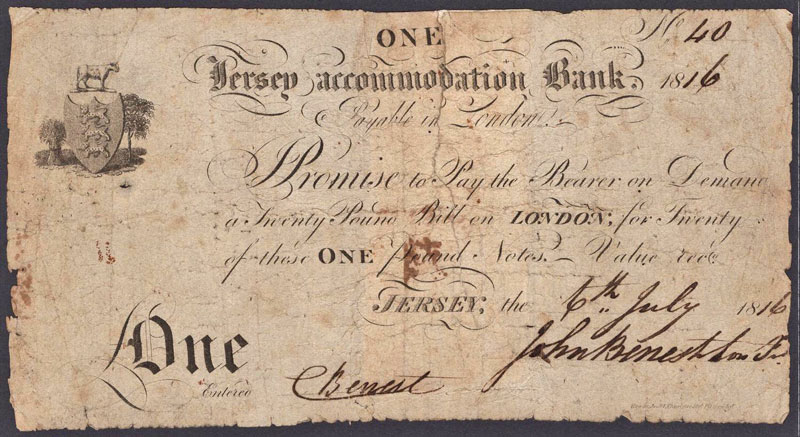 ONE
No. 40
Jersey accommodation Bank. 1816
Payable in London.
I Promise to Pay the Bearer on Demand
a Twenty Pound Bill on LONDON, for Twenty
of these ONE pound Notes. Value recd.
JERSEY, the 6th July 1816
John Benest
One
Entered
CBenest